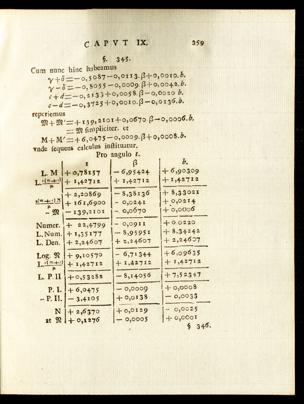 CAPVT IX. 259
§. 345.
Cum nunc hinc habeamus
γ+δ=−0,5087−0,0113.β+0,0010.b.
γ−δ=−0,8055−0,0009.β+0,0042.b.
c+d=−0,2133+0,0058.β−0,0020 b.
c−d=−0,3725+0,0010.β−0,0136.b.
reperiemus
𝔐+𝔐′=+139,2101+0,0670.β−0,0006.b.
=𝔐 simpliciter. et
M+M′=+6,0475−0,0009.β+0,0008.b.
vnde sequens calculus instituatur.
Pro angulo r.
1 β b.
L. M +0,78157 −6,95424 +6,90309
+1,42712 +1,42712 +1,42712
+2,20869 −8,38136 +8,33021
+161,6900 −0,0241 +0,0214
−𝔐 −139,2101 −0,0670 +0,0006
Numer. +22,4799 −0,0911 +0,0220
L. Num. +1,35177 −8,95951 +8,34242
L. Den. +2,24607 +2,24607 +2,24607
Log. 𝔑 +9,10570 −6,71344 +6,09635
+1,42712 +1,42712 +1,42712
L. P. II +0,53282 −8,14056 +7,52347
P. I. +6,0475 −0,0009 +0,0008
−P. II. −3,4105 +0,0138 −0,0033
N +2,6370 +0,0129 −0,0025
et 𝔑 +0,1276 −0,0005 +0,0001
§ 346.